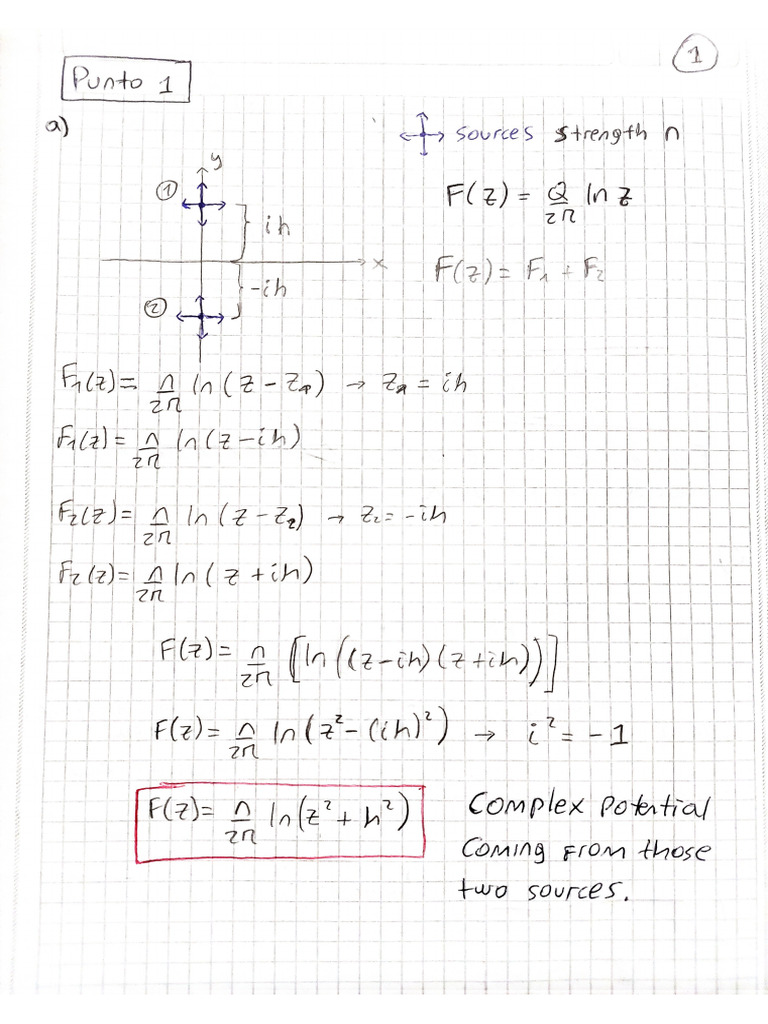 1
Punto 1
a)
sources strength n
y
①
F(z) = Q/2π ln z
ih
x
F(z) = F₁ + F₂
-ih
②
F₁(z) = n/2π ln(z - z₁) → z₁ = ih
F₁(z) = n/2π ln(z - ih)
F₂(z) = n/2π ln(z - z₂) → z₂ = -ih
F₂(z) = n/2π ln(z + ih)
F(z) = n/2π [ln((z-ih)(z+ih))]
F(z) = n/2π ln(z² - (ih)²) → i² = -1
F(z) = n/2π ln(z² + h²)
Complex Potential
Coming From those
two sources.